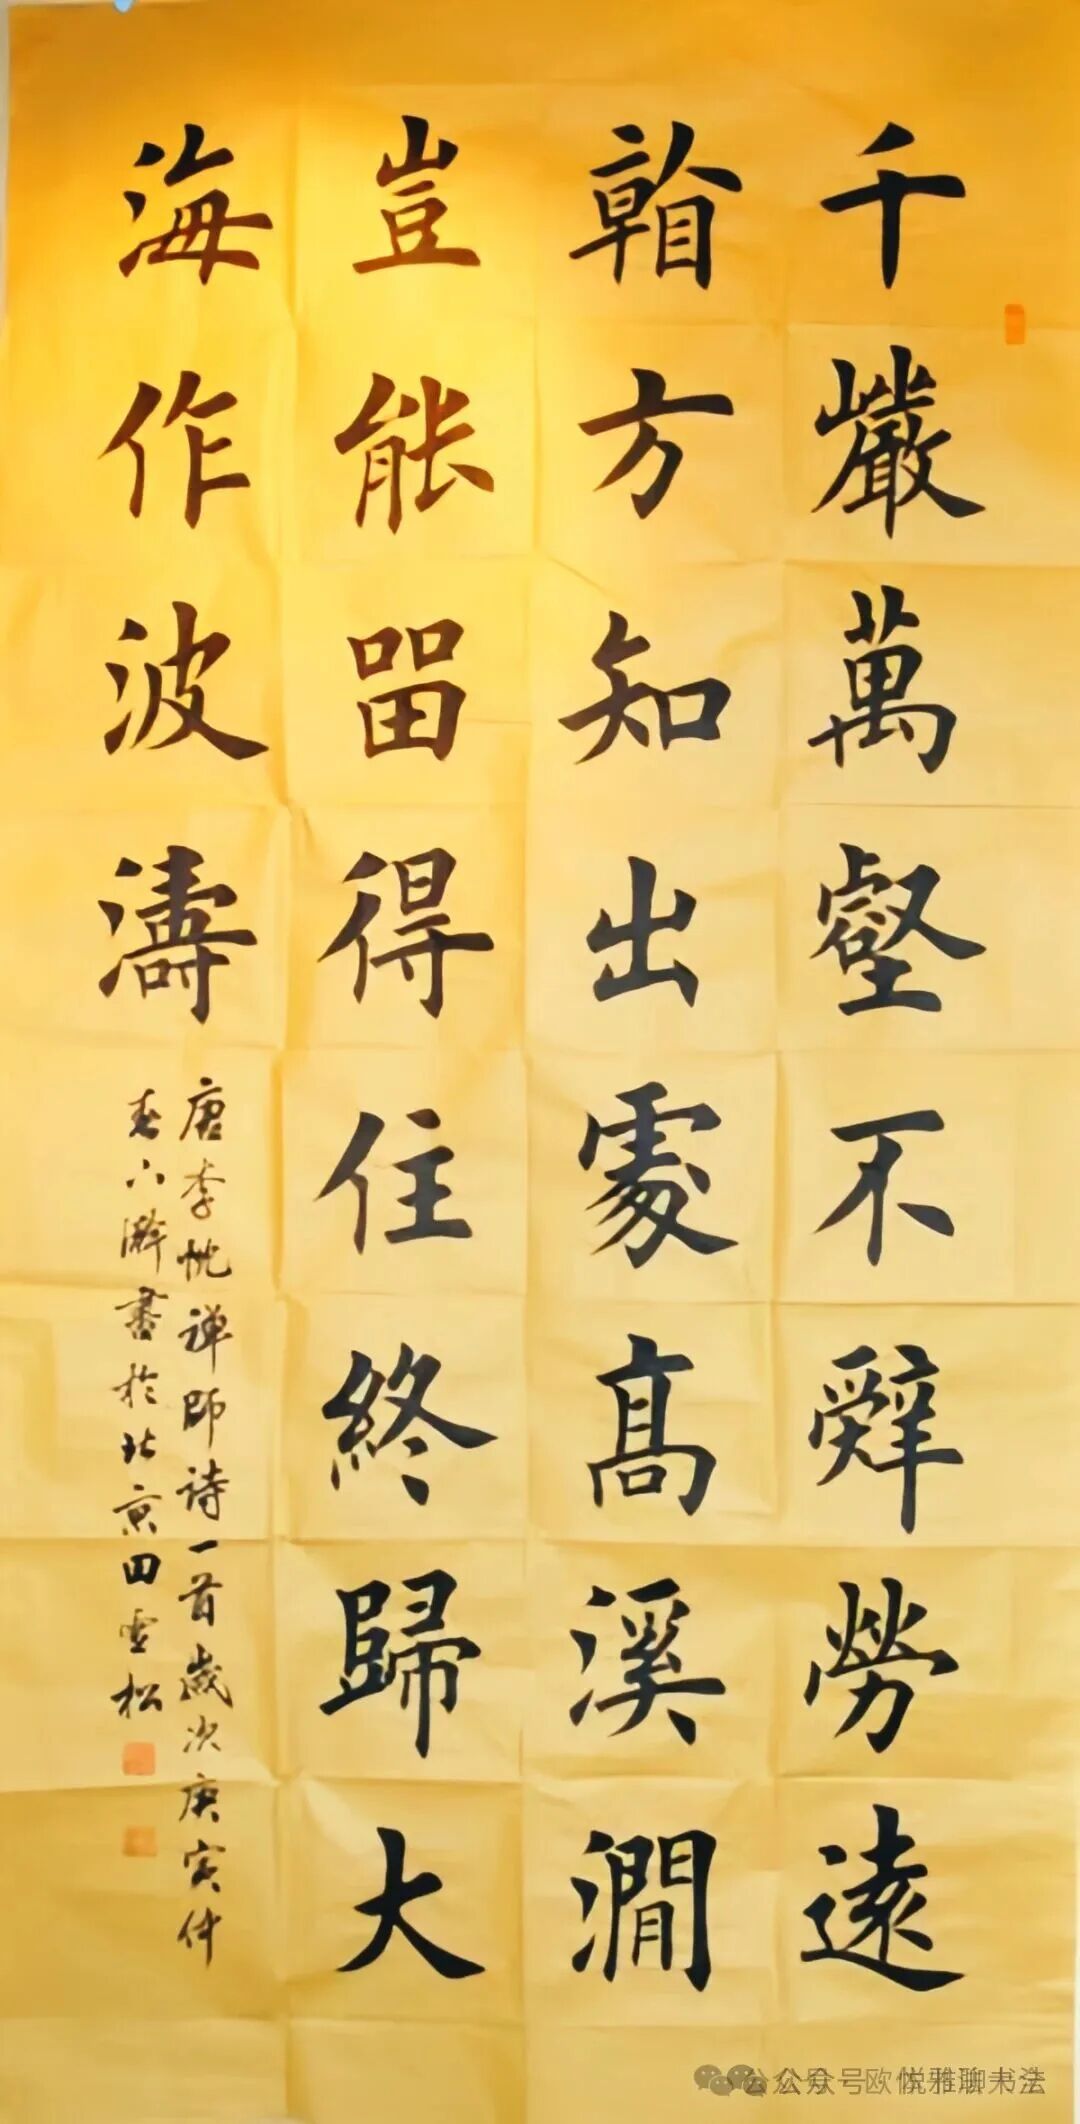 千巖萬壑不辭勞遠
看方知出處高溪澗
豈能留得住終歸大
海作波濤
唐李忱禅師詩一首歲次庚寅仲
春下澣書於北京田雪松
公众号 欧悦雅聊书法